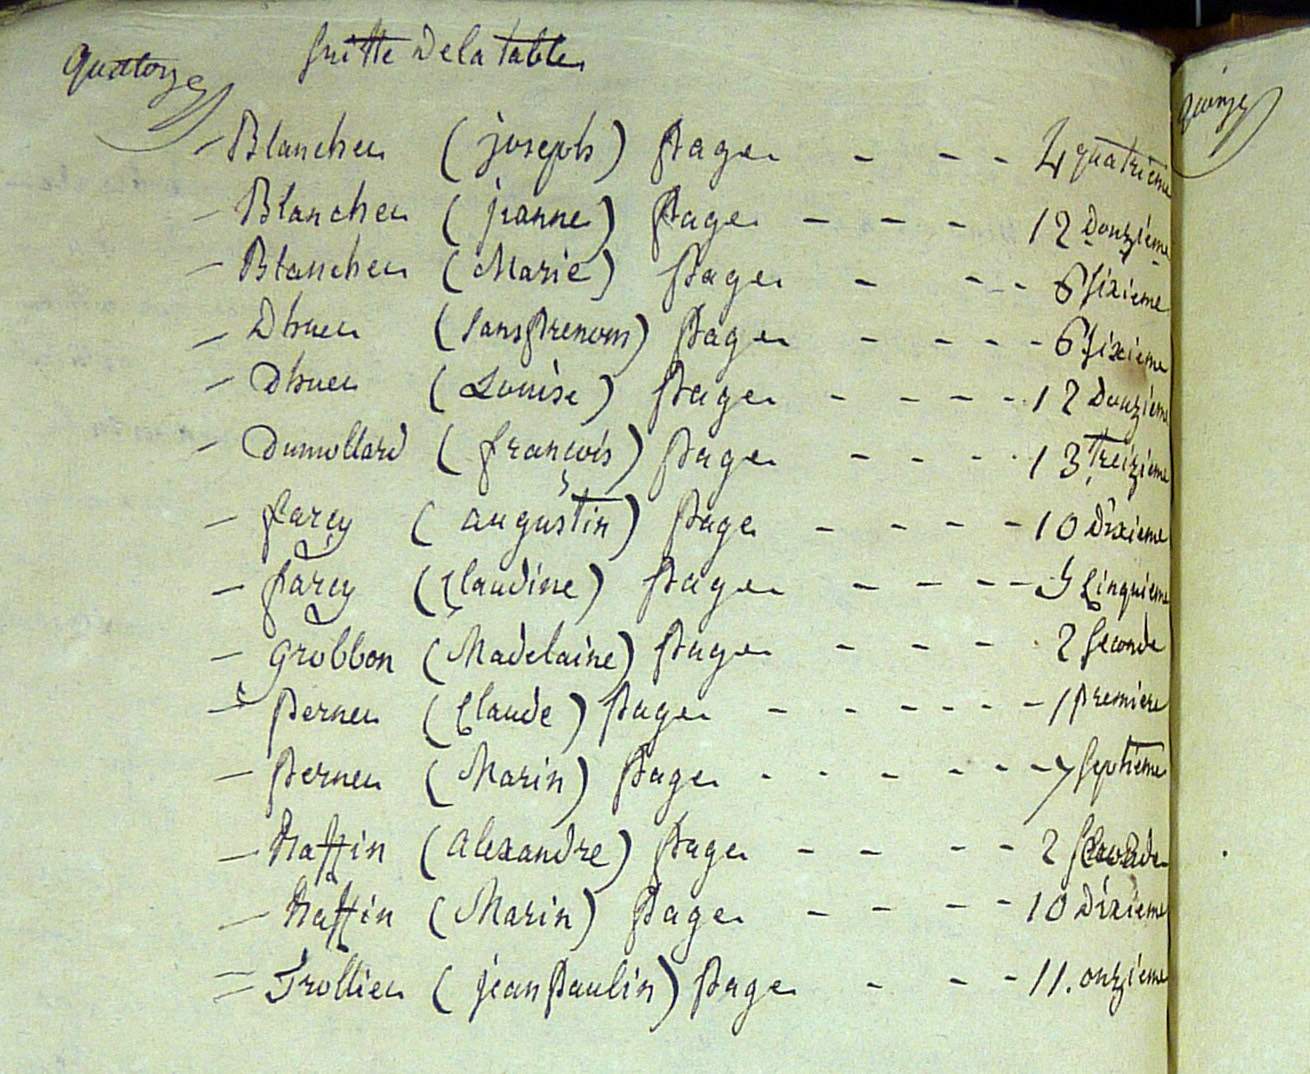 quatorze
Suitte De la table
- Blancher (joseph) Page - - - 4 quatrieme
- Blancher (jeanne) Page - - - - 12 Douzieme
- Blancher (Marie) Page - - - - 6 sixieme
- Dhuer (sans Prenom) Page - - - - - 6 sixieme
- Dhuer (Louise) Page - - - - - 12 Douzieme
- Dumollard (françois) Page - - - - 13 Treizieme
- farcy (augustin) Page - - - - 10 Dixieme
- farcy (Claudine) Page - - - - - 5 Cinquieme
- grobbon (Madelaine) Page - - - - 2 seconde
- Perner (Claude) Page - - - - - - 1 Premiere
- Perner (Marin) Page - - - - - - 7 septieme
- Raffin (alexandre) Page - - - - 2 seconde
- Raffin (Marin) Page - - - - 10 Dixieme
= Trollier (jean Paulin) Page - - - 11. onzieme
quinze